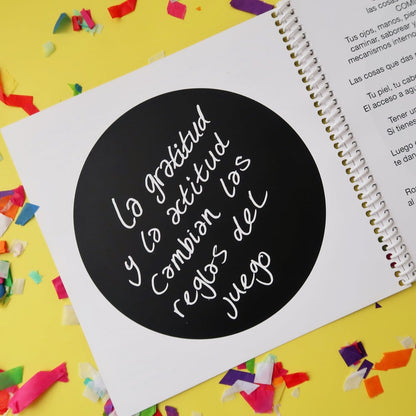 la gratitud
y la actitud
cambian las
reglas del
juego
las cosas
COM
Tus ojos, manos, pier
caminar, saborear y
mecanismos interno
Las cosas que das
Tu piel, tu cab
El acceso a agu
Tener un
Si tienes
Luego
te dar
Ro
al